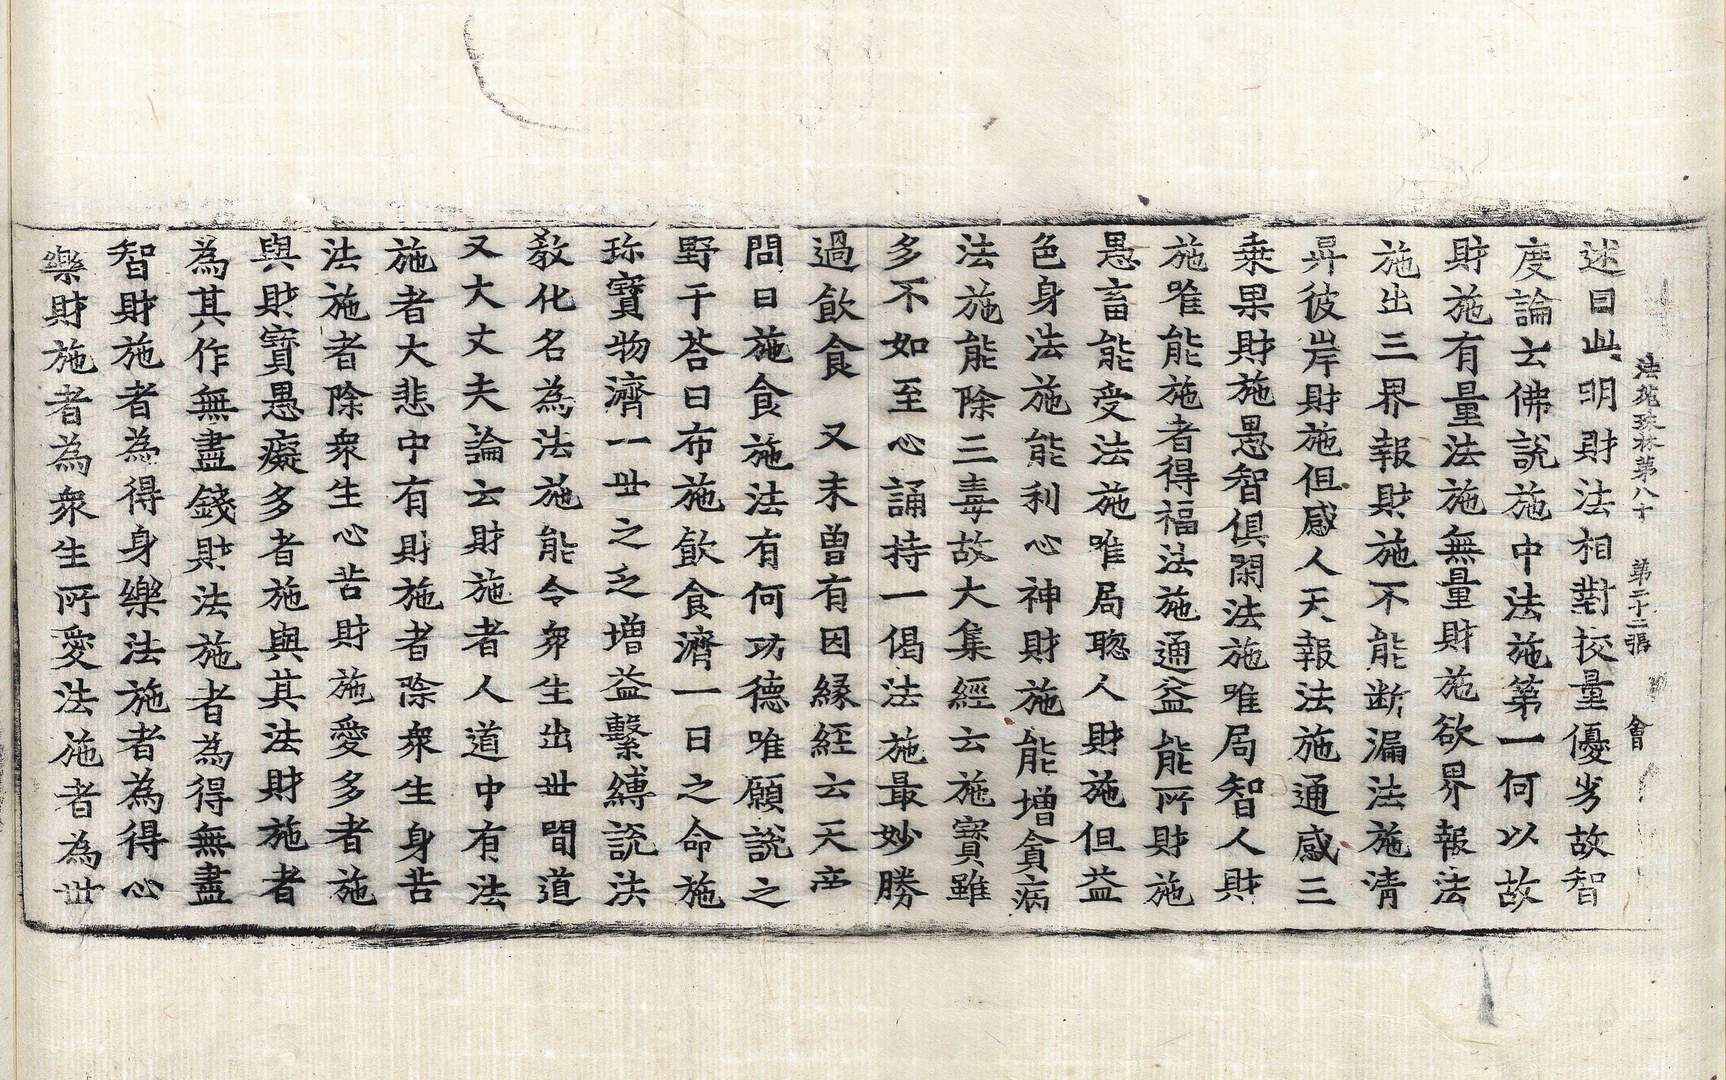 法苑珠林第八十 第二十二張 會
述曰此明財法相對挍量優劣故智
度論云佛說施中法施第一何以故
財施有量法施無量財施欲界報法
施出三界報財施不能斷漏法施清
昇彼岸財施但感人天報法施通感三
乗果財施愚智俱閑法施唯局智人財
施唯能施者得福法施通益能所財施
愚畜能受法施唯局聦人財施但益
色身法施能利心神財施能增貪病
法施能除三毒故大集經云施寶雖
多不如至心誦持一偈法施最妙勝
過飲食 又未曾有因縁經云天帝
問曰施食施法有何功德唯願說之
野干荅曰布施飲食濟一日之命施
珎寶物濟一世之乏增益繫縛說法
教化名為法施能令衆生出世間道
又大丈夫論云財施者人道中有法
施者大悲中有財施者除衆生身苦
法施者除衆生心苦財施愛多者施
與財寶愚癡多者施與其法財施者
為其作無盡錢財法施者為得無盡
智財施者為得身樂法施者為得心
樂財施者為衆生所愛法施者為世